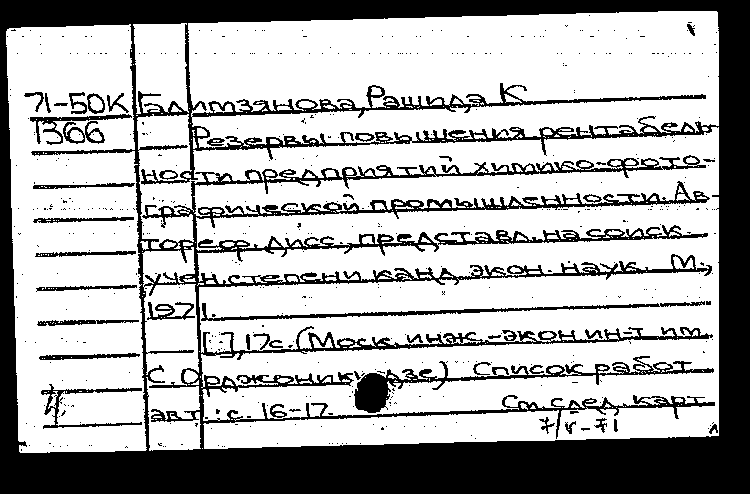 71-50К Галимзянова, Рашида К
1366 Резервы повышения рентабель-
ности предприятий химико-фото-
графической промышленности. Ав-
тореф. дисс., представл. на соиск.
учен. степени канд. экон. наук. М.,
1971.
[.], 17с. (Моск. инж.-экон. ин-т им.
С. Орджоникидзе) Список работ
авт.: с. 16-17. См. след. карт.
4
7/V-71